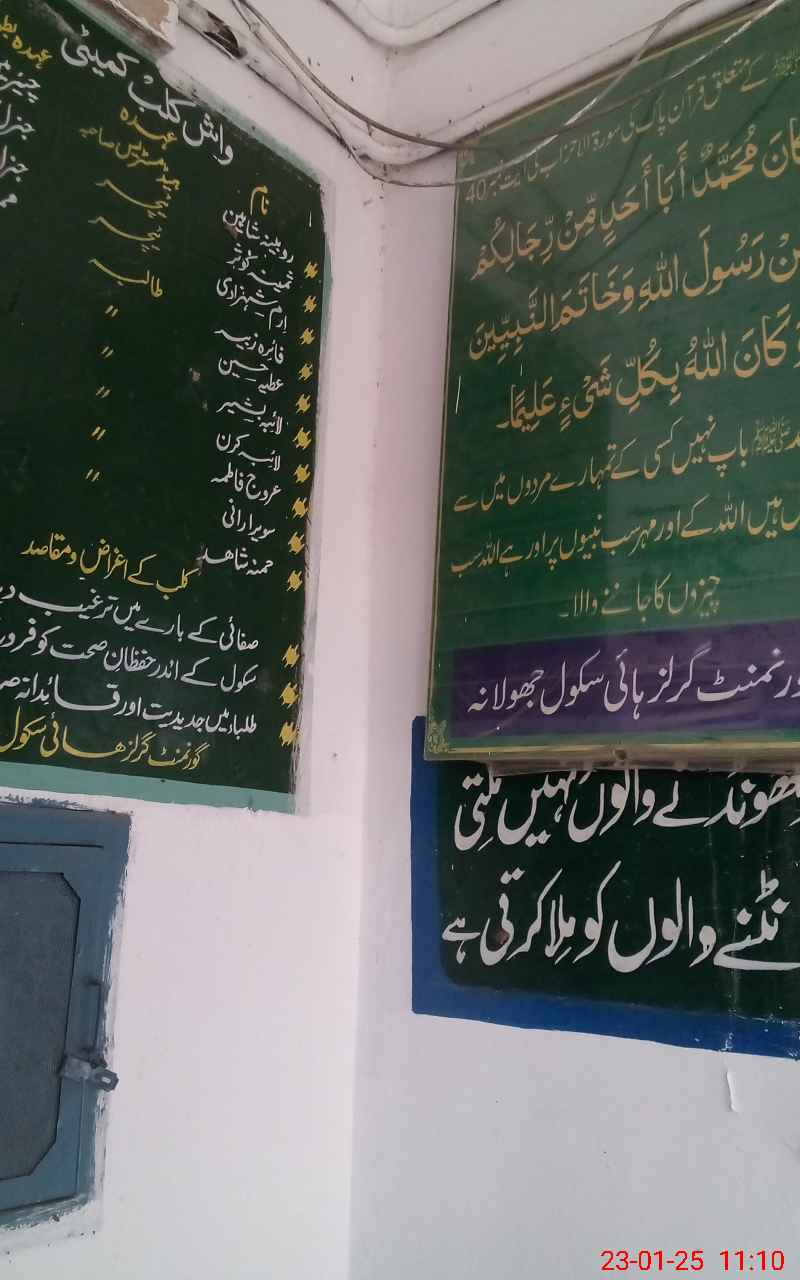 واش کلب کمیٹی
نام عہدہ عہدہ
روبینہ شاہین ہیڈ مسٹریس صاحبہ
ثمینہ کوثر ٹیچر
ارم شہزادی ٹیچر
فائزہ زیب طالبہ
عطیہ حسین "
لائبہ بشیر "
لائبہ کرن "
عروج فاطمہ "
سویرا رانی "
حمنہ شاہد
کلب کے اغراض و مقاصد
صفائی کے بارے میں ترغیب
سکول کے اندر حفظان صحت کو
طلباء میں جدیدیت اور قائدانہ
گورنمنٹ گرلز ھائی سکول
کے متعلق قرآن پاک کی سورۃ الاحزاب کی آیت نمبر 40
كَانَ مُحَمَّدٌ أَبَا أَحَدٍ مِّنْ رِّجَالِكُمْ
رَسُولَ اللهِ وَخَاتَمَ النَّبِيِّينَ
وَكَانَ اللهُ بِكُلِّ شَيْءٍ عَلِيمًا۔
ﷺ باپ نہیں کسی کے تمہارے مردوں میں سے
ہیں اللہ کے اور مہر سب نبیوں پر اور ہے اللہ سب
چیزوں کا جاننے والا۔
گرلز ہائی سکول جھولانہ
والوں نہیں ملتی
والوں کو ملا کرتی ہے
23-01-25 11:10